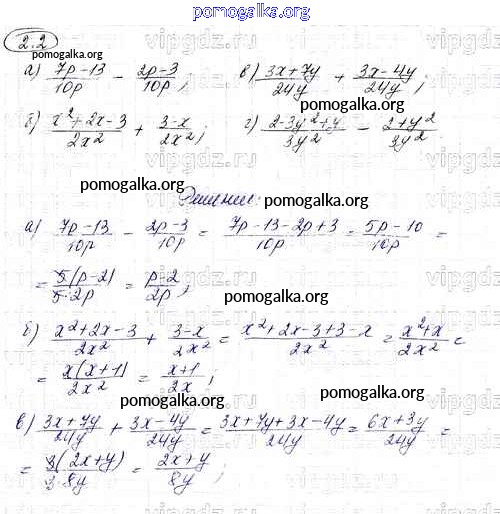 pomogalka.org
2.2
pomogalka.org
а) (7p-13)/10p - (2p-3)/10p; в) (3x+7y)/24y + (3x-4y)/24y;
pomogalka.org
б) (x²+2x-3)/2x² + (3-x)/2x²; г) (2-3y²+y)/3y² - (2+y²)/3y²
pomogalka.org
Решение:
pomogalka.org
а) (7p-13)/10p - (2p-3)/10p = (7p-13-2p+3)/10p = (5p-10)/10p =
= 5(p-2)/5·2p = (p-2)/2p;
pomogalka.org
б) (x²+2x-3)/2x² + (3-x)/2x² = (x²+2x-3+3-x)/2x² = (x²+x)/2x² =
= x(x+1)/2x² = (x+1)/2x;
pomogalka.org
pomogalka.org
в) (3x+7y)/24y + (3x-4y)/24y = (3x+7y+3x-4y)/24y = (6x+3y)/24y =
= 3(2x+y)/3·8y = (2x+y)/8y;
pomogalka.org